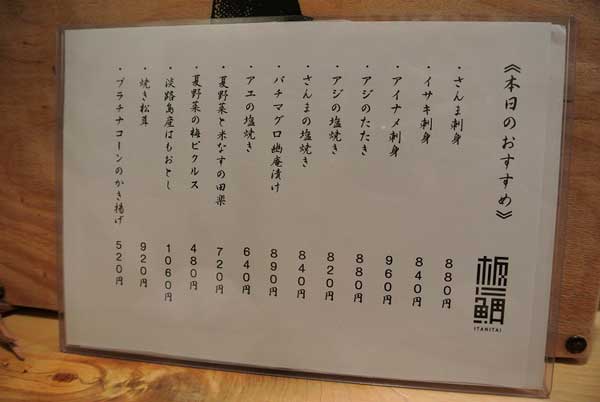 《本日のおすすめ》
・さんま刺身 880円
・イサキ刺身 840円
・アイナメ刺身 960円
・アジのたたき 880円
・アジの塩焼き 820円
・さんまの塩焼き 840円
・バチマグロ幽庵漬け 890円
・アユの塩焼き 640円
・夏野菜と米なすの田楽 720円
・夏野菜の梅ピクルス 480円
・淡路島産はもおとし 1060円
・焼き松茸 920円
・プラチナコーンのかき揚げ 520円
板鯛
ITAHITAI